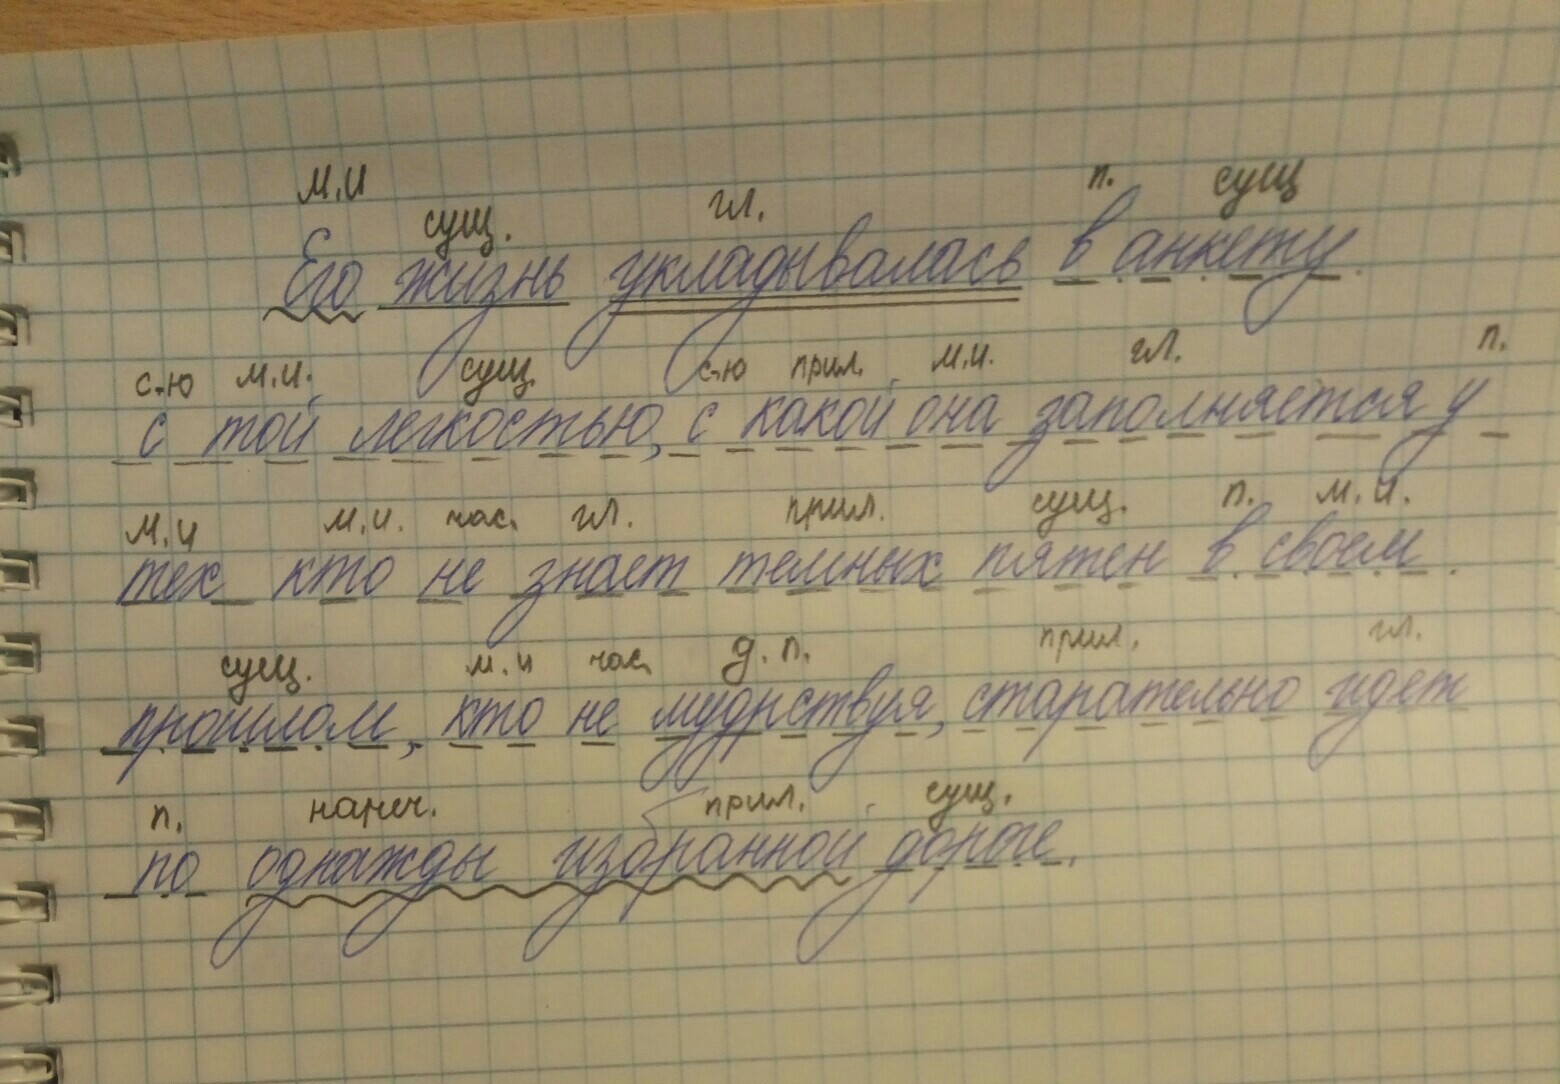 м.и сущ. гл. п. сущ
Его жизнь укладывалась в анкету
с-ю м.и. сущ. с-ю прил. м.и. гл. п.
с той легкостью, с какой она заполняется у
м.и м.и. час. гл. прил. сущ. п. м.и.
тех кто не знает темных пятен в своем
сущ. м.и час. д.п. прил. гл.
прошлом, кто не мудрствуя, старательно идет
п. нареч. прил. сущ.
по однажды избранной дороге.